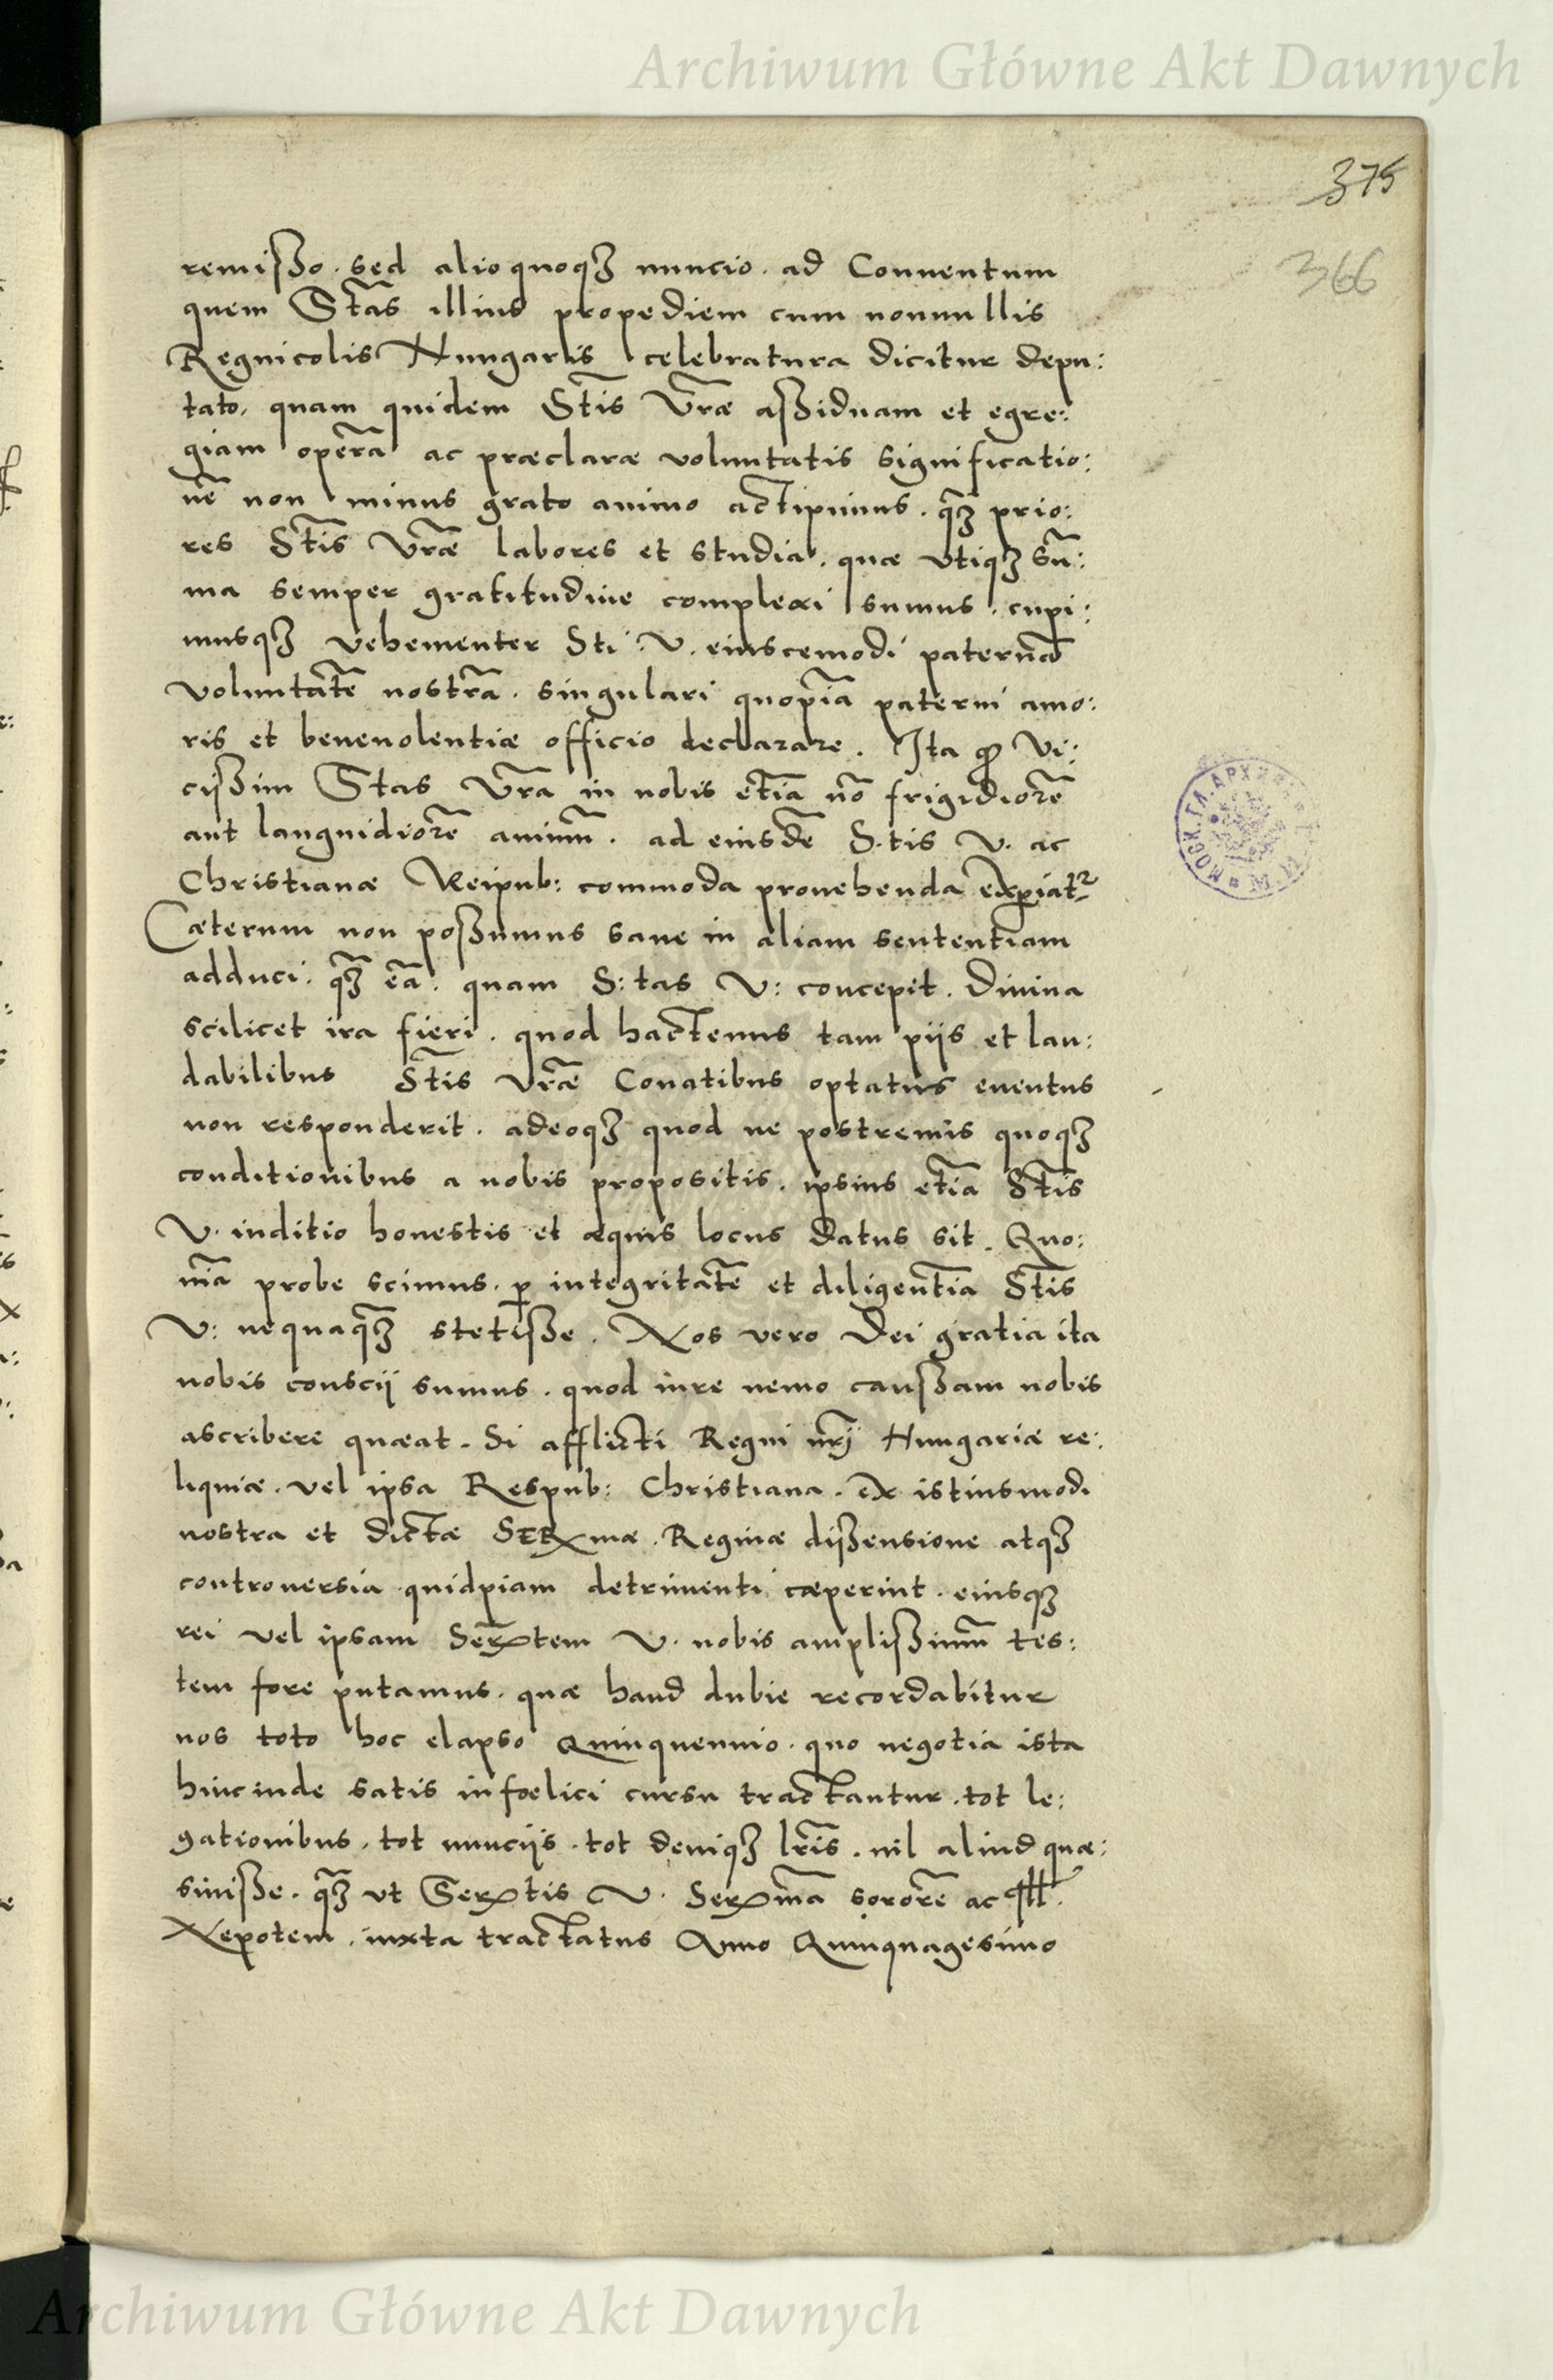 Archiwum Główne Akt Dawnych
375
366
remisso. sed alio quoqꝫ nuncio. ad Conuentum
quem Stas illius propediem cum nonnullis
Regnicolis Hungaris celebratura dicitur depu:
tato. quam quidem Stis Vrae assiduam et egre:
giam operā ac praeclarae voluntatis significatio:
nē non minus grato animo accipimus. qꝫ prio:
res Stis Vrae labores et studia. quae vtiqꝫ sū:
ma semper gratitudine complexi sumus. cupi:
musqꝫ vehementer Sti: V. eiuscemodi paternā
voluntatē nostrā. singulari quopiā paterni amo:
ris et beneuolentiae officio declarare. Ita ꝙ Vi:
cissim Stas Vra in nobis etiā nō frigidiorē
aut languidiorē animū. ad eiusdē S.tis V. ac
Christianae Reipub: commoda prouehenda experiatr
Caeterum non possumus sane in aliam sententiam
adduci. qꝫ eā. quam S:tas V: concepit. Diuina
scilicet ira fieri. quod hactenus tam piis et lau:
dabilibus Stis Vrae Conatibus optatus euentus
non responderit. adeoqꝫ quod ne postremis quoqꝫ
conditionibus a nobis propositis. ipsius etiā Stis
V. iuditio honestis et aequis locus datus sit. Quo:
niā probe scimus. ꝑ integritatē et diligentiā Stis
V: nequaqꝫ stetisse. Nos vero Dei gratia ita
nobis conscij sumus. quod iure nemo caussam nobis
ascribere quaeat. Si afflicti Regni nrj Hungariae re:
liquiae. vel ipsa Respub: Christiana. ex istiusmodi
nostra et dictae SERmae. Reginae dissensione atqꝫ
controuersia quidpiam detrimenti caeperint. eiusqꝫ
rei vel ipsam Sertem V. nobis amplissimū tes:
tem fore putamus. quae haud dubie recordabitur
nos toto hoc elapso Quinquennio. quo negotia ista
hincinde satis infoelici cursu tractantur. tot le:
gationibus. tot nunciis. tot deniqꝫ lris. nil aliud quae:
siuisse. qꝫ vt Sertis V. Sermā sororē ac Ill.
Nepotem. iuxta tractatus Anno Quinquagesimo
Archiwum Główne Akt Dawnych